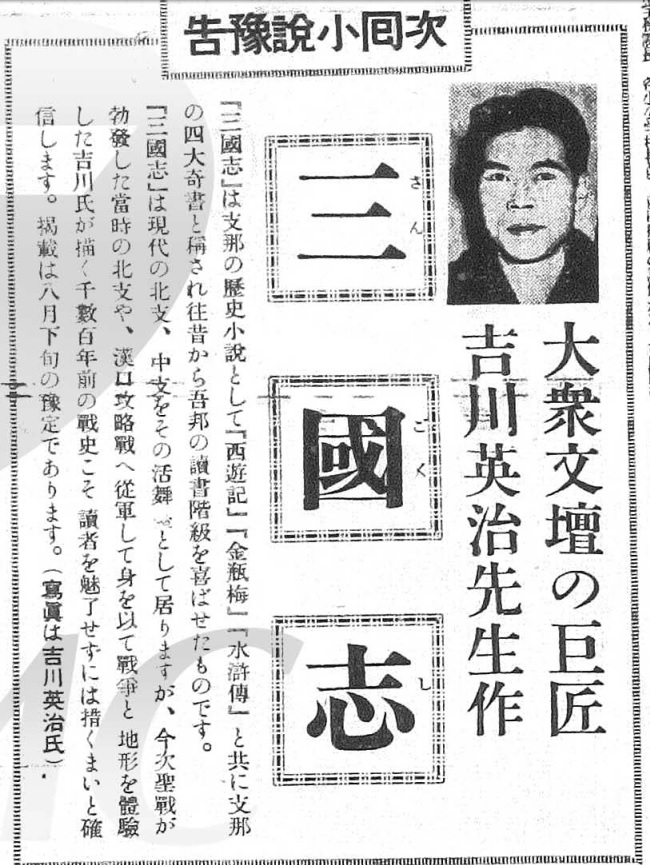 次回小說豫告
大衆文壇の巨匠
吉川英治先生作
三國志
さんごくし
『三國志』は支那の歷史小說として『西遊記』『金瓶梅』『水滸傳』と共に支那
の四大奇書と稱され往昔から吾邦の讀書階級を喜ばせたものです。
『三國志』は現代の北支、中支をその活舞として居りますが、今次聖戰が
勃發した當時の北支や、漢口攻略戰へ從軍して身を以て戰爭と地形を體驗
した吉川氏が描く千數百年前の戰史こそ讀者を魅了せずには措くまいと確
信します。揭載は八月下旬の豫定であります。(寫眞は吉川英治氏)